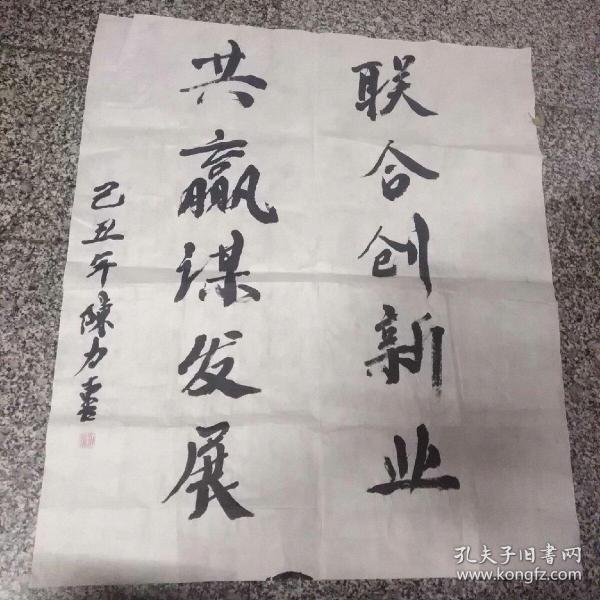 联合创新业
共赢谋发展
己丑年陳力書
孔夫子旧書网
www.kongfz.com